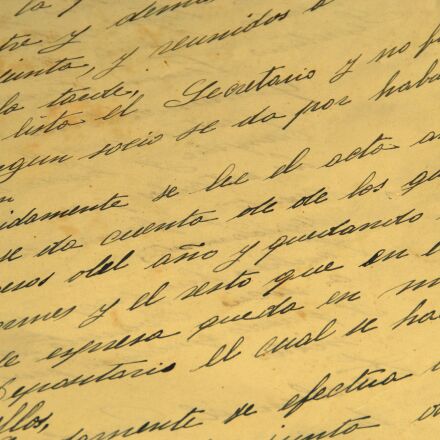 la
tre y dema
junta, y reunidos a
la tarde,
lista el Secretario y no
ngun socio se da por hab
n
idamente se lee el acta a
se da cuenta de de los g
esos del año y quedando
ormes y el resto que en l
se expresa queda en m
Depositario el cual se ha
illos,
damente se efectua
junta